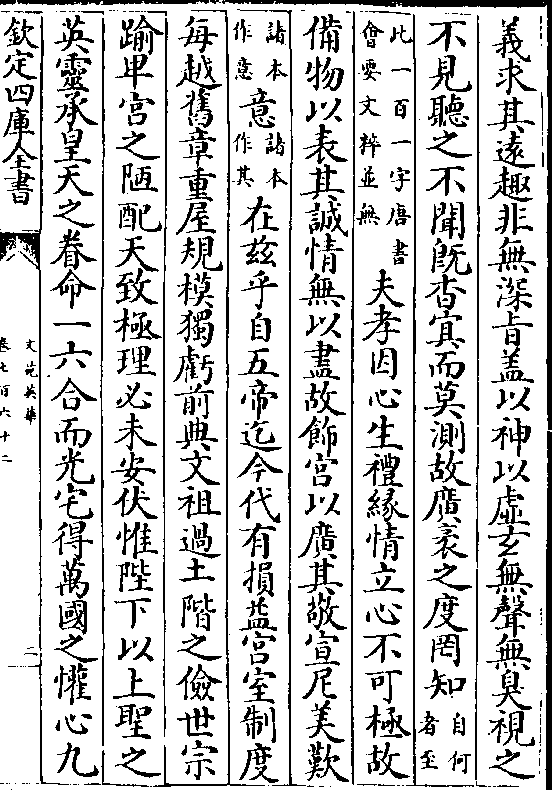 義求其遠趣非無深旨盖以神以虚玄無聲無臭視之
不見聽之不聞既杳㝠而莫測故廣袤之度罔知自何者至
此一百一字唐書會要文粹並無夫孝因心生禮緣情立心不可極故
備物以表其誠情無以盡故飾宫以廣其敬宣尼美歎
諸本作意意諸本作其在兹乎自五帝迄今代有損益宫室制度
每越舊章重屋規模獨虧前典文祖過土階之儉世宗
踰卑宫之陋配天致極理必未安伏惟陛下以上聖之
英靈承皇天之眷命一六合而光宅得萬國之懽心九
欽定四庫全書
文苑英華
卷七百六十二
二